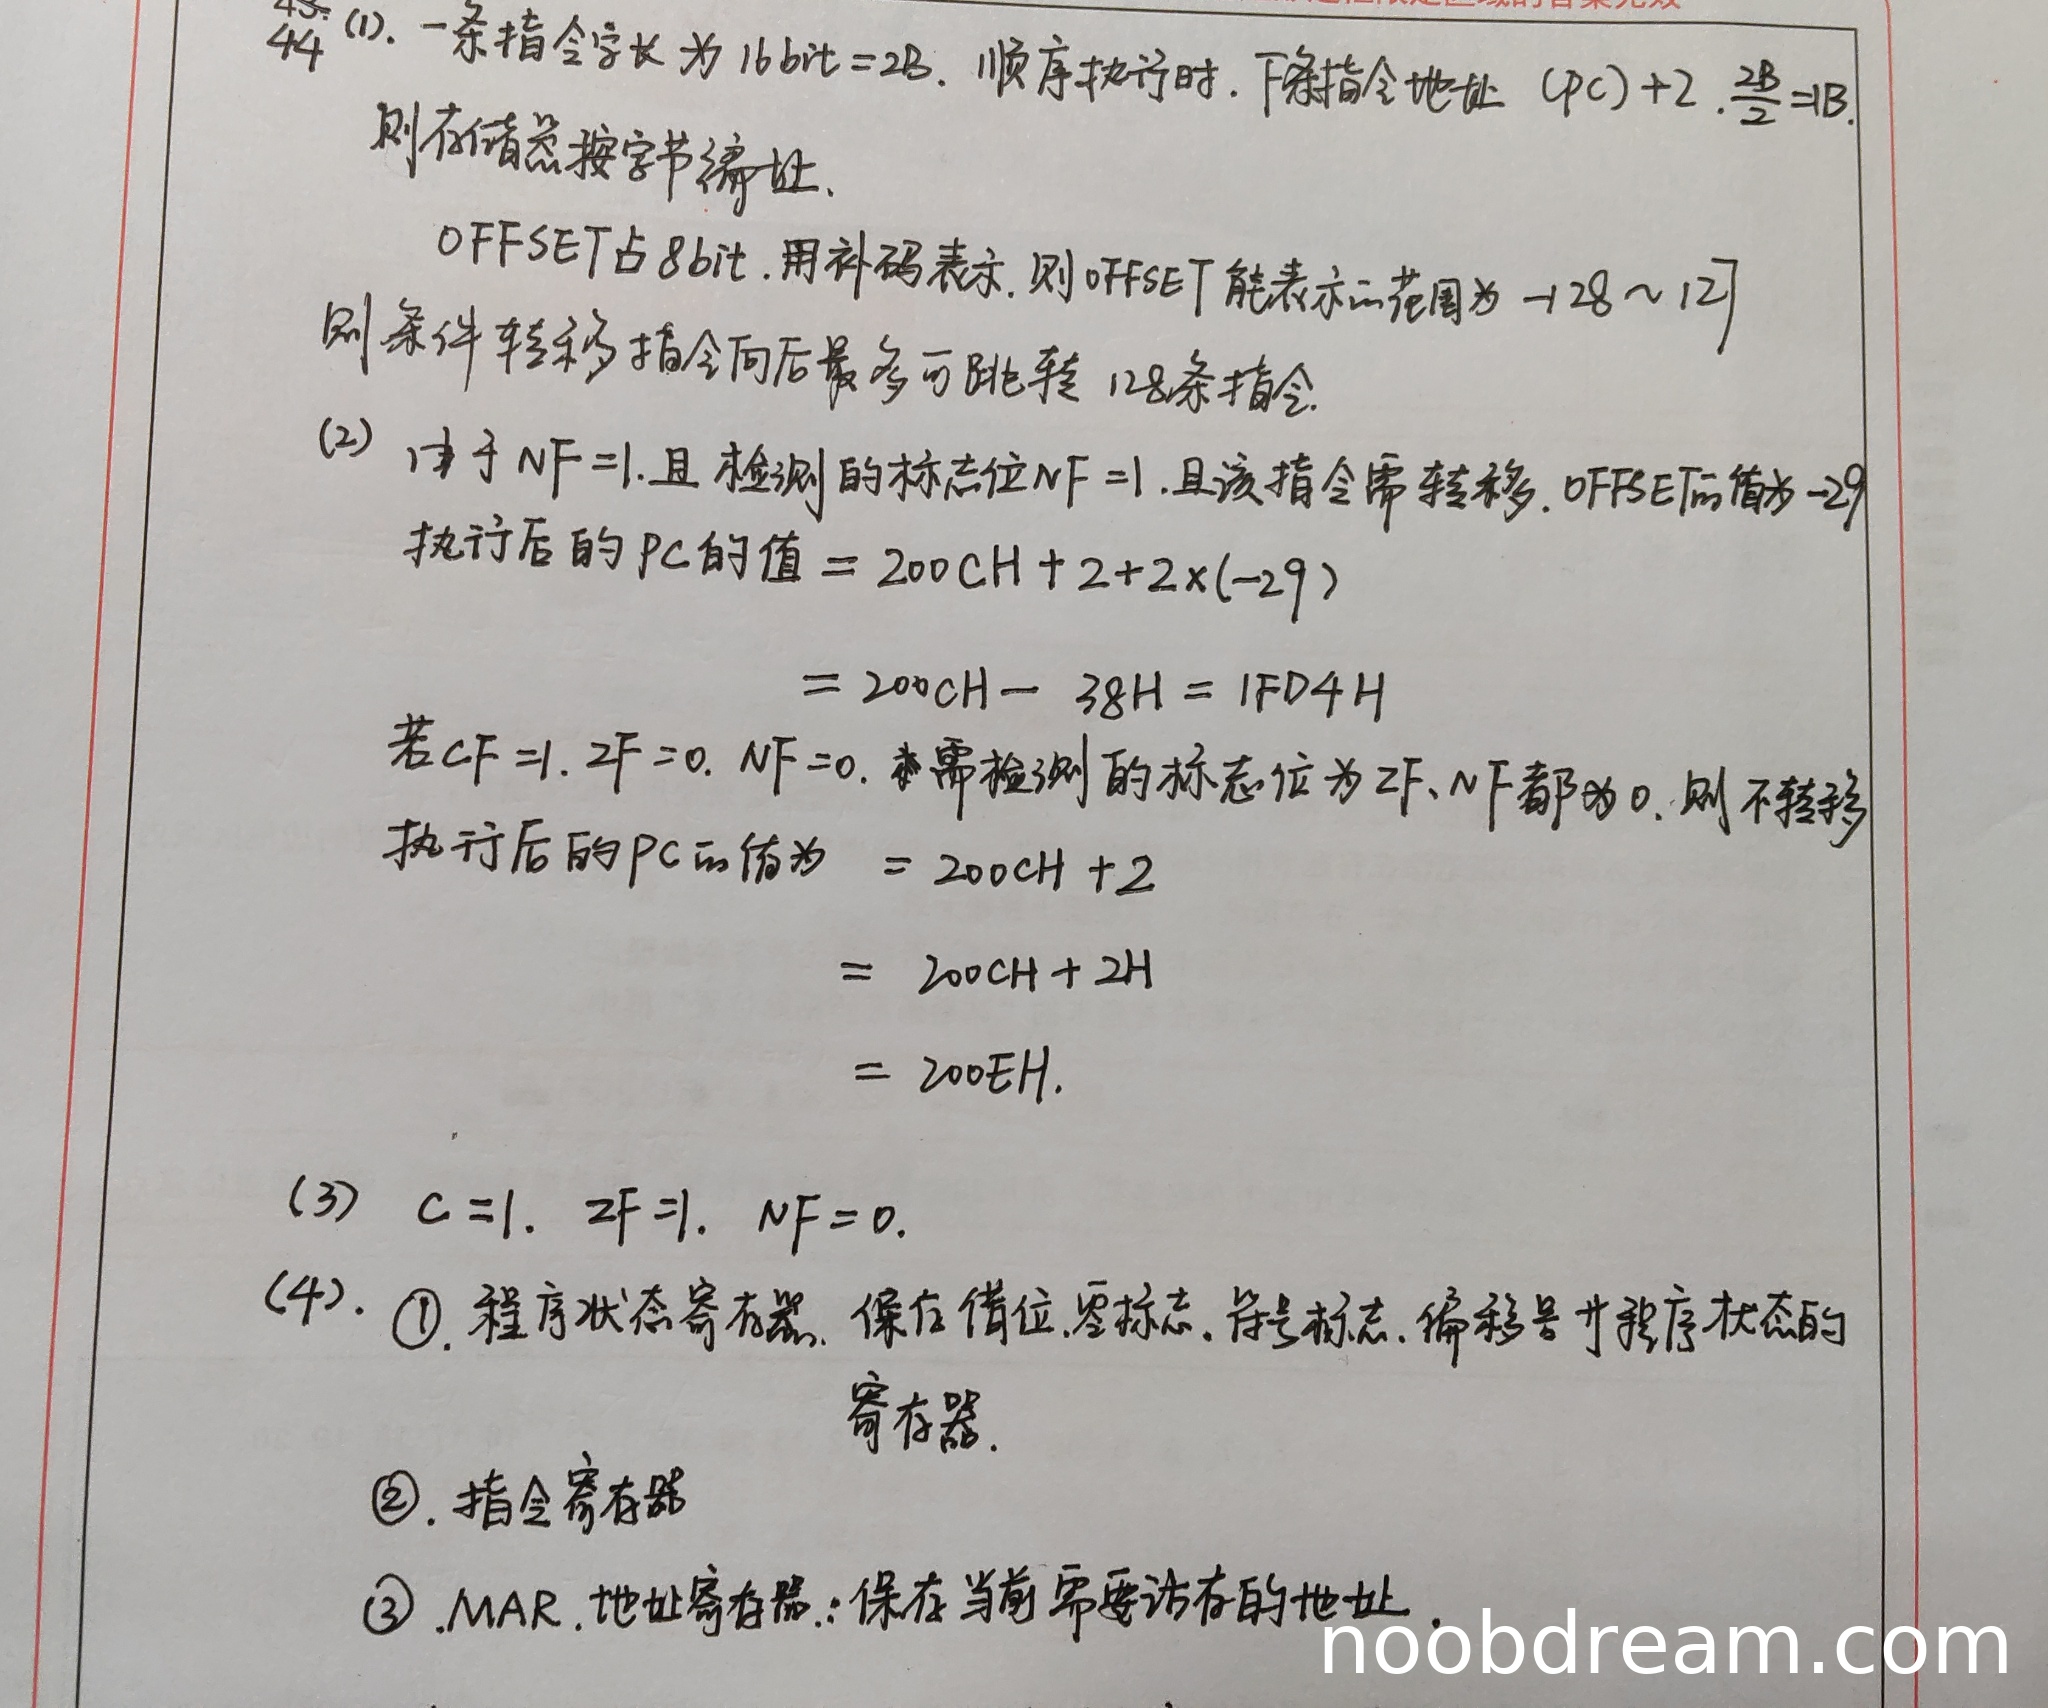 44 (1). 一条指令字长为16bit=2B. 顺序执行时. 下条指令地址 (PC)+2. 2B/2=1B.
则存储器按字节编址.
OFFSET占8bit. 用补码表示. 则OFFSET能表示的范围为 -128~127
则条件转移指令向后最多可跳转 128条指令.
(2) 由于NF=1.且检测的标志位NF=1.且该指令需转移. OFFSET的值为-29
执行后的PC的值 = 200CH+2+2×(-29)
= 200CH - 38H = 1FD4H
若CF=1. ZF=0. NF=0. 需检测的标志位为ZF、NF都为0. 则不转移
执行后的PC的值为 = 200CH+2
= 200CH+2H
= 200EH.
(3) C=1. ZF=1. NF=0.
(4). ①. 程序状态寄存器. 保存借位.零标志.符号标志.偏移号 程序状态的
寄存器.
②. 指令寄存器
③. MAR. 地址寄存器.: 保存当前需要访存的地址.
noobdream.com